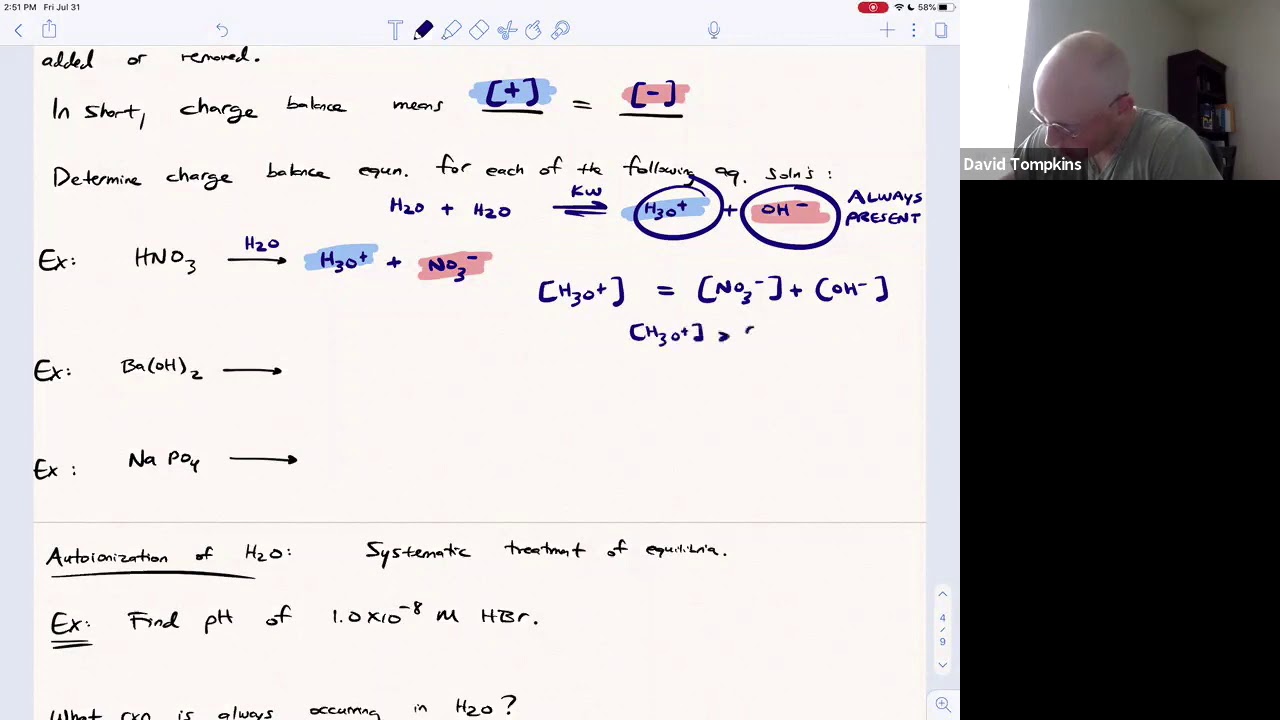 2:51 PM Fri Jul 31
58%
added or removed.
In short, charge balance means [+] = [-]
Determine charge balance equn. for each of the following aq. soln's:
H2O + H2O Kw H3O+ + OH- ALWAYS PRESENT
Ex: HNO3 H2O H3O+ + NO3-
[H3O+] = [NO3-] + [OH-]
[H3O+] >
Ex: Ba(OH)2
Ex: Na PO4
Autoionization of H2O: Systematic treatment of equilibria.
Ex: Find pH of 1.0×10-8 M HBr.
What rxn is always occurring in H2O?
4/9
David Tompkins